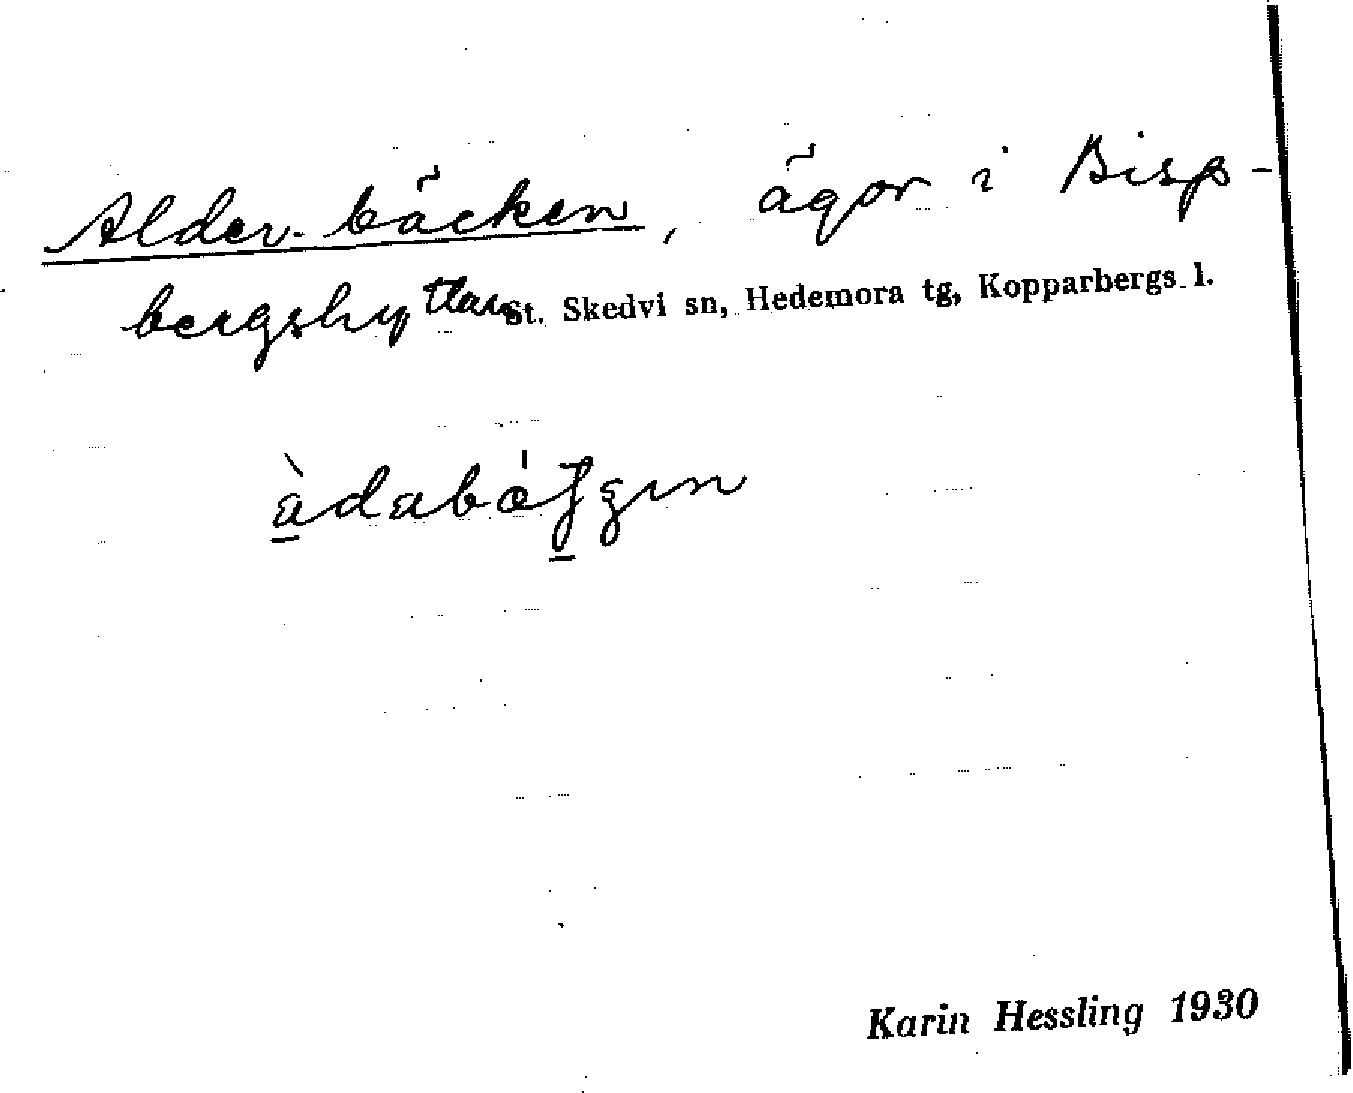 Alder-bäcken, ägor i Bisp-
bergshyttan St. Skedvi sn, Hedemora tg, Kopparbergs l.
Karin Hessling 1930